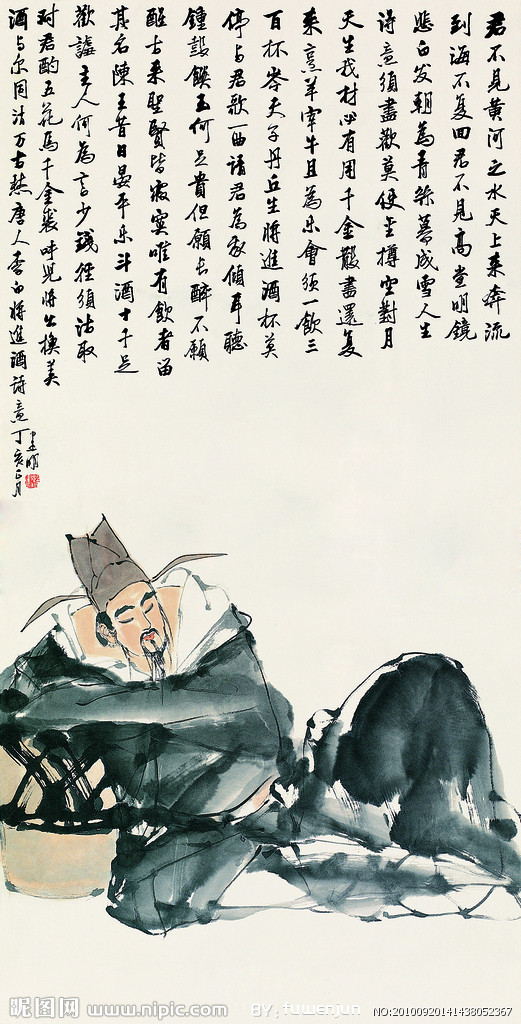 君不見黄河之水天上来奔流
到海不复回君不見高堂明鏡
悲白发朝為青絲暮成雪人生
诗意須盡歡莫使金樽空對月
天生我材必有用千金散盡還复
来烹羊宰牛且為乐會須一飲三
百杯岑夫子丹丘生將進酒杯莫
停与君歌一曲請君為我傾耳聽
鐘鼓饌玉何足貴但願长醉不願
醒古来聖賢皆寂寞唯有飲者留
其名陳王昔日宴平乐斗酒十千足
歡謔主人何為言少錢徑須沽取
对君酌五花馬千金裘呼児將出換美
酒与尔同消万古愁唐人李白將進酒詩意丁亥正月
建明
昵图网 www.nipic.com BY: fuwenjun NO:20100920141438052367